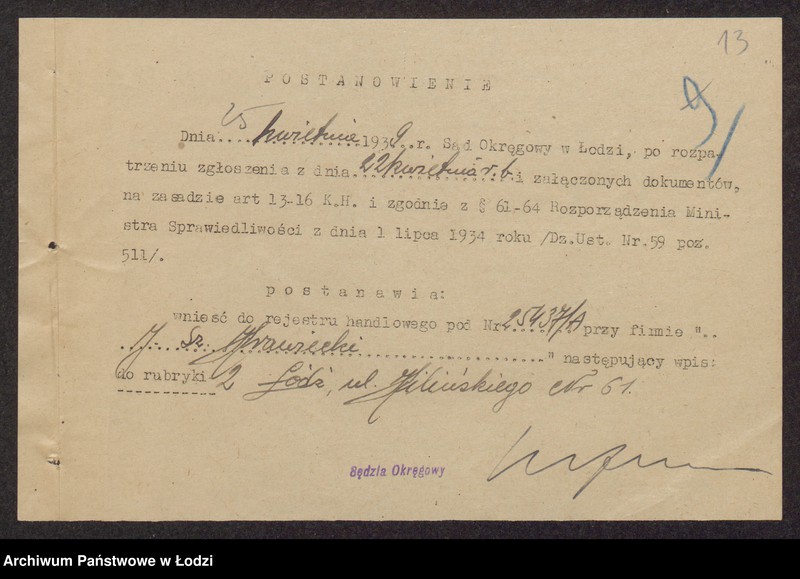 13
9/
POSTANOWIENIE
Dnia 25 kwietnia 1939 r. Sąd Okręgowy w Łodzi, po rozpa-
trzeniu zgłoszenia z dnia 22 kwietnia r.b. i załączonych dokumentów,
na zasadzie art 13-16 K.H. i zgodnie z § 61-64 Rozporządzenia Mini-
stra Sprawiedliwości z dnia 1 lipca 1934 roku /Dz.Ust. Nr.59 poz.
511/.
postanawia:
wnieść do rejestru handlowego pod Nr 25437/A przy firmie "..
J. Sz. " następujący wpis:
do rubryki 2 Łódź, ul. Kilińskiego Nr 61.
Sędzia Okręgowy
Archiwum Państwowe w Łodzi